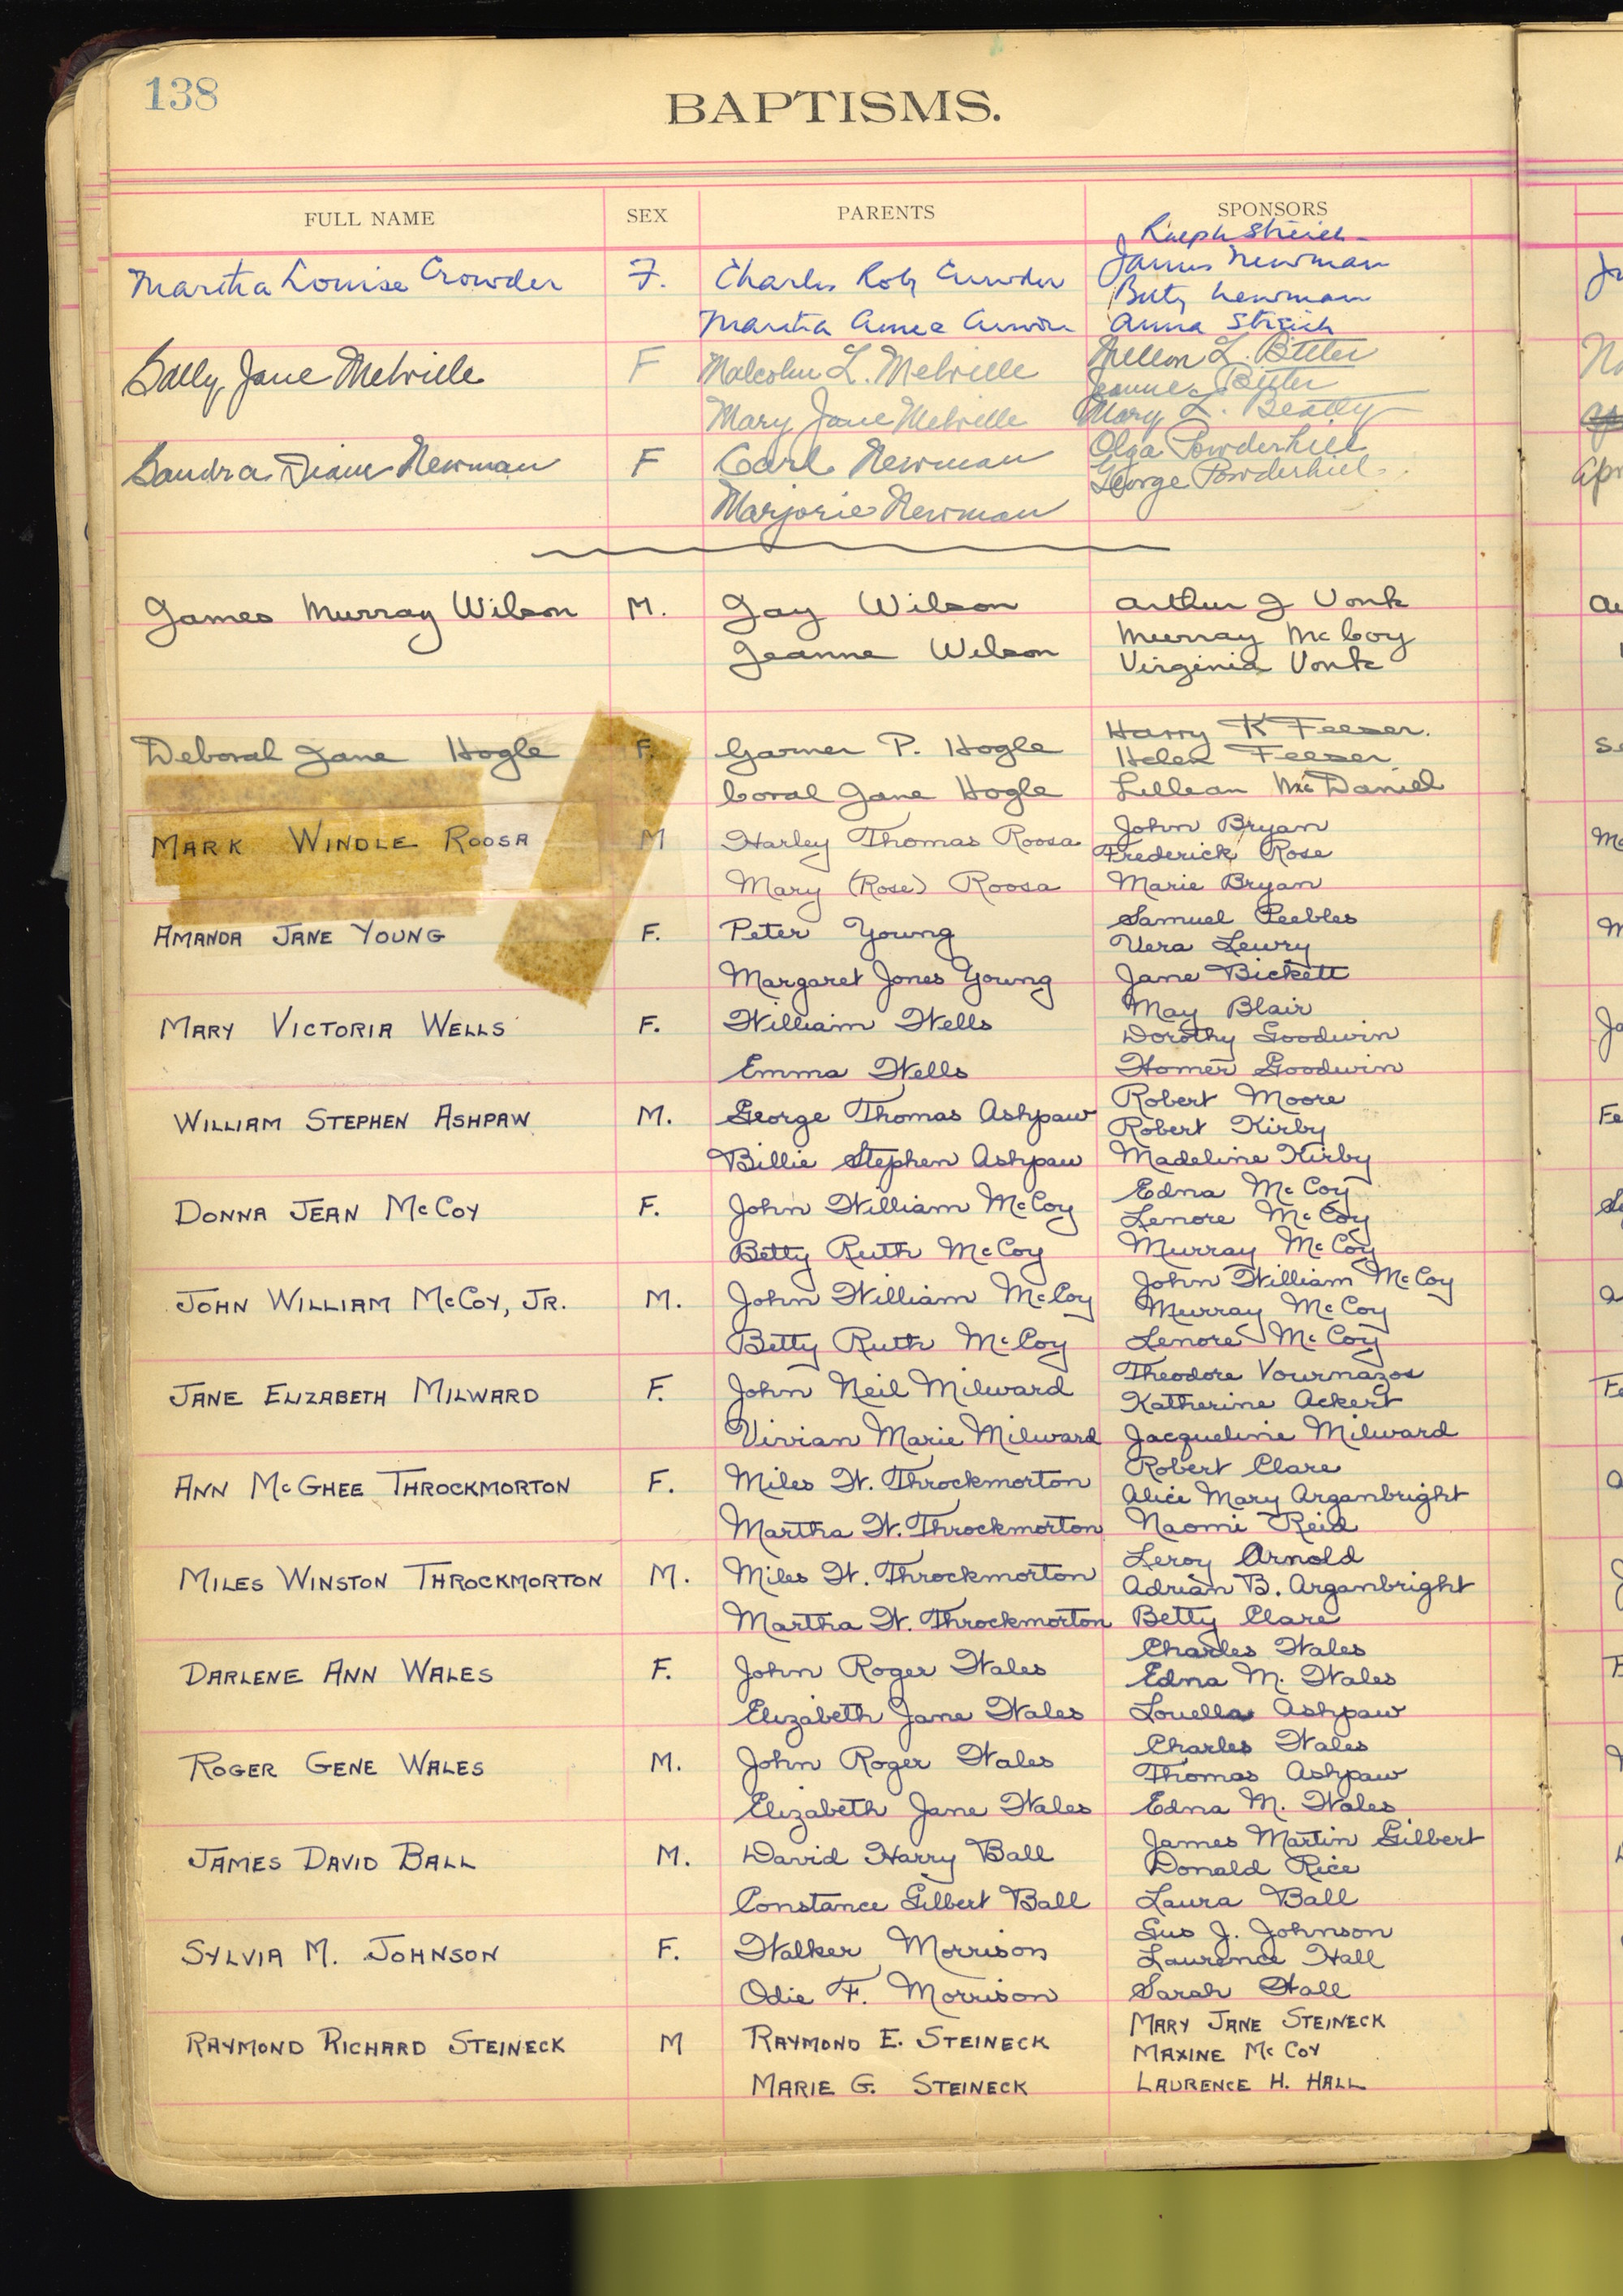 138
BAPTISMS.
FULL NAME SEX PARENTS SPONSORS
Ralph Streich
Martha Louise Crowder F. Charles Crowder James Newman
Betty Newman
Martha Anna Streich
Sally Jane Melville F Malcolm L. Melville
Mary Jane Melville Mary L. Beatty
Sandra Diane Newman F Carl Newman Olga Powderhill
George Powderhill
Marjorie Newman
James Murray Wilson M. Jay Wilson Arthur J Vonk
Murray McCoy
Jeanne Wilson Virginia Vonk
Deborah Jane Hogle F. Garner P. Hogle Harry K Feezer.
Helen Feezer
Coral Jane Hogle Lillean McDaniel
MARK WINDLE ROOSA M Harley Thomas Roosa John Bryan
Frederick Rose
Mary (Rose) Roosa Marie Bryan
AMANDA JANE YOUNG F. Peter Young Samuel Peebles
Vera Lewry
Margaret Jones Young Jane Bickett
MARY VICTORIA WELLS F. William Wells May Blair
Dorothy Goodwin
Emma Wells Homer Goodwin
WILLIAM STEPHEN ASHPAW M. George Thomas Ashpaw Robert Moore
Robert Kirby
Billie Stephen Ashpaw Madeline Kirby
DONNA JEAN McCOY F. John William McCoy Edna McCoy
Lenore McCoy
Betty Ruth McCoy Murray McCoy
JOHN WILLIAM McCOY, JR. M. John William McCoy John William McCoy
Murray McCoy
Betty Ruth McCoy Lenore McCoy
JANE ELIZABETH MILWARD F. John Neil Milward Theodore Vournazos
Katherine Ackert
Vivian Marie Milward Jacqueline Milward
ANN McGHEE THROCKMORTON F. Miles W. Throckmorton Robert Clare
Alice Mary Arganbright
Martha W. Throckmorton Naomi Reid
MILES WINSTON THROCKMORTON M. Miles W. Throckmorton Leroy Arnold
Adrian B. Arganbright
Martha W. Throckmorton Betty Clare
DARLENE ANN WALES F. John Roger Wales Charles Wales
Edna M. Wales
Elizabeth Jane Wales Louella Ashpaw
ROGER GENE WALES M. John Roger Wales Charles Wales
Thomas Ashpaw
Elizabeth Jane Wales Edna M. Wales
JAMES DAVID BALL M. David Harry Ball James Martin Gilbert
Donald Rice
Constance Gilbert Ball Laura Ball
SYLVIA M. JOHNSON F. Walker Morrison Gus J. Johnson
Laurence Hall
Odie F. Morrison Sarah Hall
RAYMOND RICHARD STEINECK M RAYMOND E. STEINECK MARY JANE STEINECK
MAXINE McCOY
MARIE G. STEINECK LAURENCE H. HALL